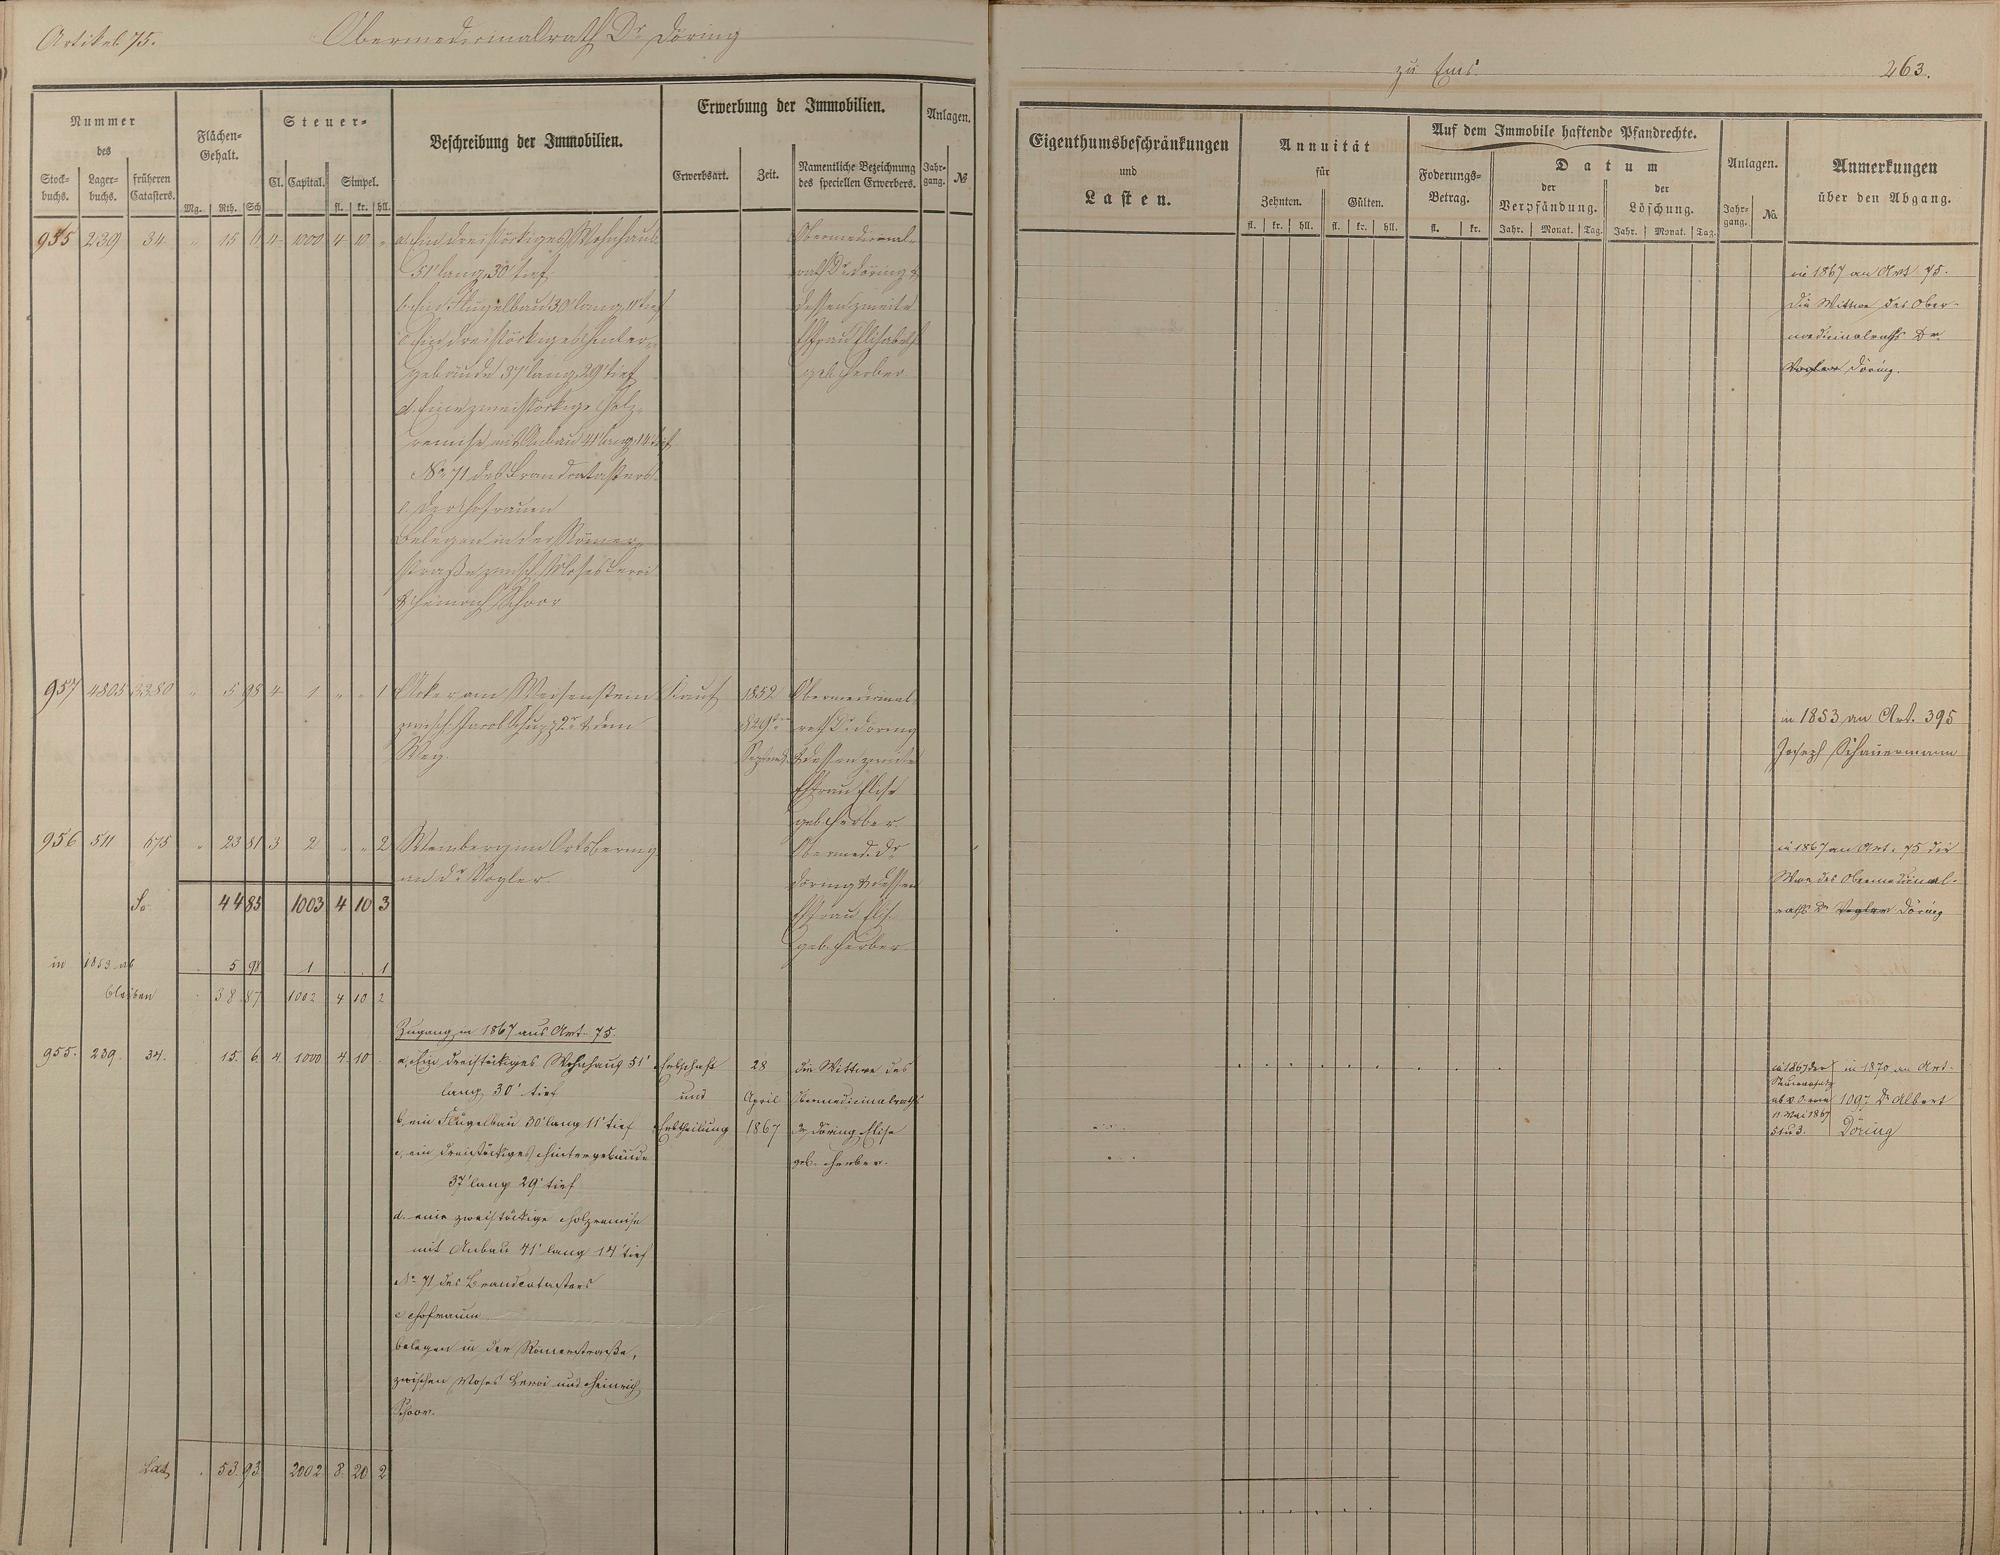 Artikel 75.
Obermedicinalrath Dr Döring
zu Ems.
263.
Nummer
des
Stock-
buchs.
Lager-
buchs.
früheren
Catasters.
Flächen-
Gehalt.
Mg. Rth. Sch
Steuer-
Cl. Capital. Simpel.
fl. kr. hll.
Beschreibung der Immobilien.
Erwerbung der Immobilien.
Erwerbsart. Zeit.
Namentliche Bezeichnung
des speciellen Erwerbers.
Anlagen.
Jahr-
gang. №
Eigenthumsbeschränkungen
und
Lasten.
Annuität
für
Zehnten. Gülten.
fl. kr. hll. fl. kr. hll.
Auf dem Immobile haftende Pfandrechte.
Foderungs-
Betrag.
fl. kr.
Datum
der
Verpfändung.
der
Löschung.
Jahr. Monat. Tag. Jahr. Monat. Tag.
Anlagen.
Jahr-
gang. No.
Anmerkungen
über den Abgang.
955 239 34 " 15 6 4 1000 4 10 "
a. Ein dreistöckiges Wohnhaus
51' lang, 30' tief
b. Ein Flügelbau 30' lang, 11' tief
c. Ein dreistöckiges Hinter-
gebäude 37' lang, 29' tief
d. Eine zweistöckige Holz-
remise mit Anbau 41' lang, 14' tief
No 71 des Brandcatasters
e. der Hofraum
Belegen in der Römer-
straße zwisch. Moses Leroi
& Heinrich Schoor
Obermedicinal-
rath Dr Döring &
dessen zweite
Ehfrau Elisabeth
geb. Herber
in 1867 an Art 75.
die Wittwe des Ober-
medicinalraths Dr
Vogler Döring.
957 4805 3380 " 5 98 4 1 " " 1
Acker am Weisenstein
zwisch. Jacob Schupp 2r & dem
Weg.
Kauf
1852
d 29ten
Septemb.
Obermedicinal-
rath Dr Döring
& dessen zweite
Ehfrau Elise
geb. Herber.
in 1853 an Art. 395
Joseph Schauermann
956 511 675 " 23 81 3 2 " " 2
Weinberg im Ortsbering
an Dr Vogler
Obermed. Dr
Döring & dessen
Ehfrau Elis.
geb. Herber
in 1867 an Art. 75 die
Wwe des Obermedicinal-
raths Dr Vogler Döring
Sa 44 85 1003 4 10 3
in 1853 ab 5 98 1 1
bleiben 38 87 1002 4 10 2
Zugang in 1867 aus Art. 75.
955. 239. 34. 15. 6 4 1000 4 10
a, Ein dreistöckiges Wohnhaus 51'
lang 30' tief
b, ein Flügelbau 30' lang 11' tief
c, ein dreistöckiges Hintergebäude
37' lang 29' tief
d. eine zweistöckige Holzremise
mit Anbau 41' lang 14' tief
No 71 des Brandcatasters
e Hofraum
belegen in der Römerstraße,
zwischen Moses Leroi und Heinrich
Schoor.
Erbschaft
und
Erbtheilung
28
April
1867
die Wittwe des
Obermedicinalraths
Dr Döring Elise
geb. Herber.
in 1867 der
11 Mai 1867
in 1870 an Art.
1097 Dr Albert
Döring
Lat. 53. 93. 2002 8 20 2